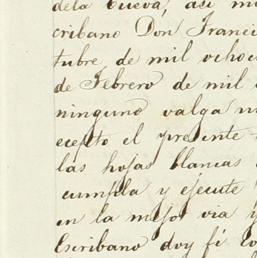 dela Cueva, así m
cribano Don Franci
tubre de mil ocho
de Febrero de mil
ninguno valga
ecepto el presente
las hojas blancas
cumpla y ejecute
en la mejor via y
Escribano doy fé co